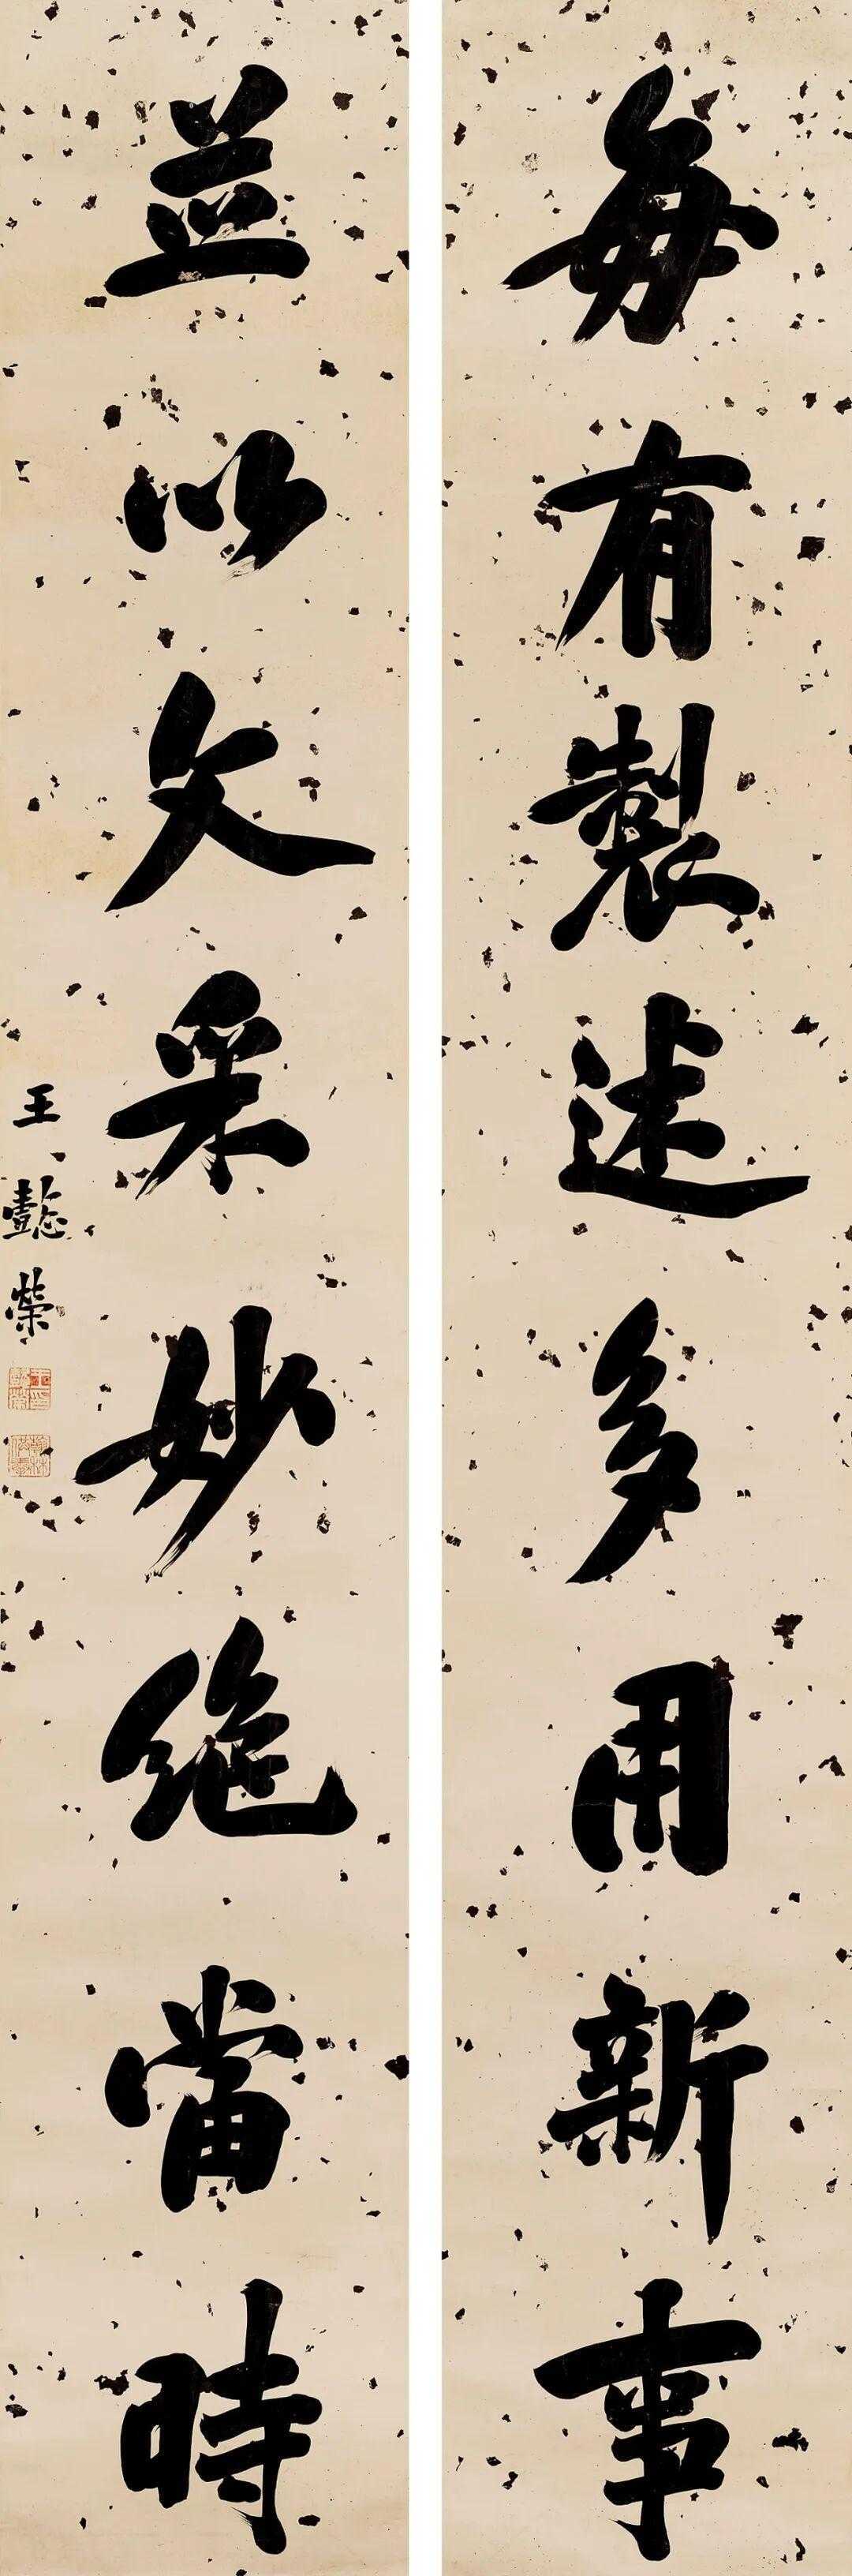 每有製述多用新事
並以文采妙絕當時
王懿榮
王懿榮印